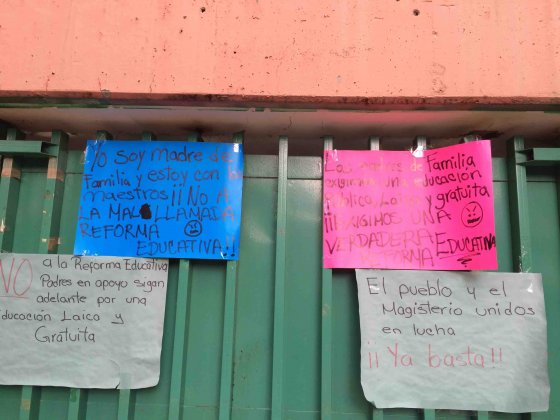 Yo soy madre de
Familia y estoy con los
maestros ¡¡No A
LA MAL LLAMADA
REFORMA
EDUCATIVA!!
Los Padres de Familia
exigimos una educación
Pública, Laica y gratuita
¡¡EXIGIMOS UNA
VERDADERA
REFORMA EDUCATIVA
NO a la Reforma Educativa
Padres en apoyo sigan
adelante por una
Educación Laica y
Gratuita
El pueblo y el
Magisterio unidos
en lucha
¡¡Ya basta!!